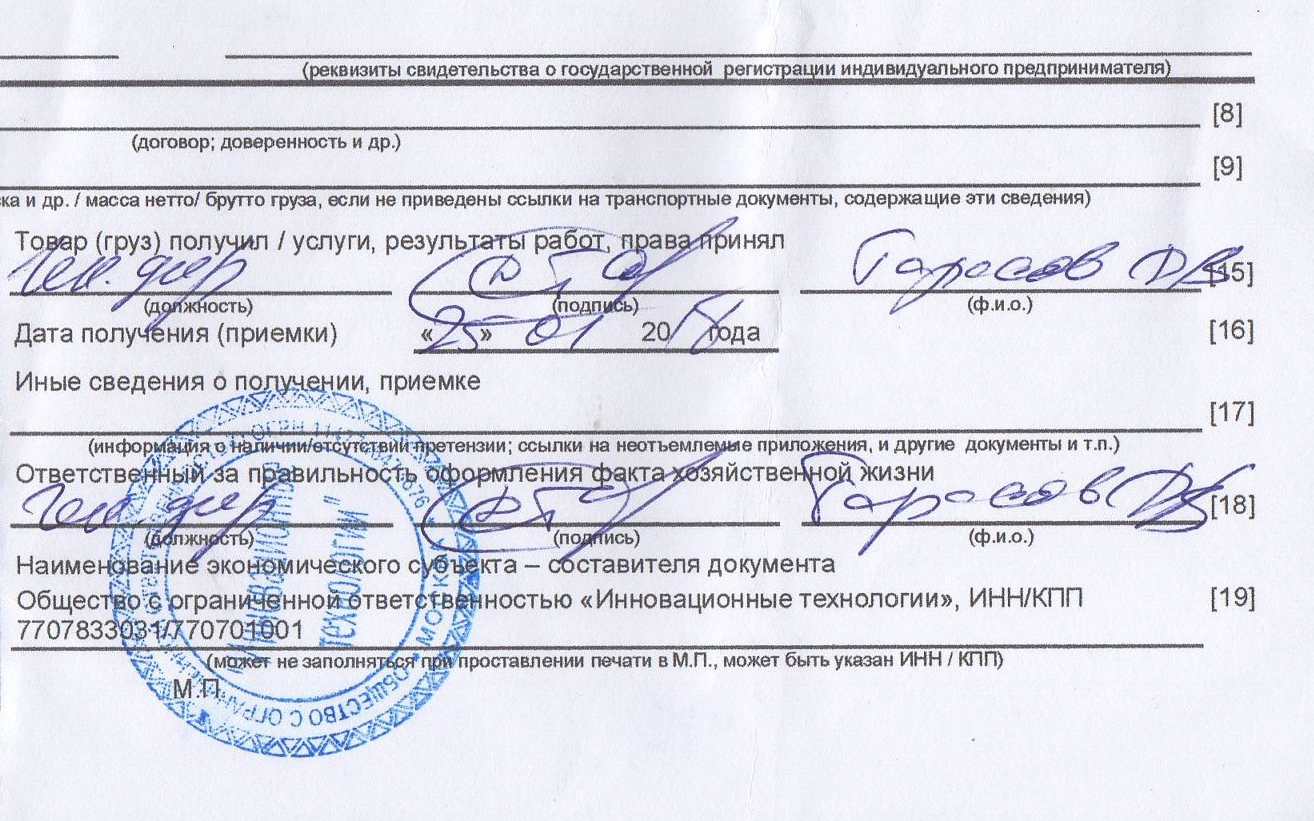 (реквизиты свидетельства о государственной регистрации индивидуального предпринимателя)
[8]
(договор; доверенность и др.)
[9]
ка и др. / масса нетто/ брутто груза, если не приведены ссылки на транспортные документы, содержащие эти сведения)
Товар (груз) получил / услуги, результаты работ, права принял
Ген. дир Тарасов ДВ [15]
(должность) (подпись) (ф.и.о.)
Дата получения (приемки) «25» 01 20 года [16]
Иные сведения о получении, приемке
[17]
(информация о наличии/отсутствии претензии; ссылки на неотъемлемые приложения, и другие документы и т.п.)
Ответственный за правильность оформления факта хозяйственной жизни
Ген. дир Тарасов ДВ [18]
(должность) (подпись) (ф.и.о.)
Наименование экономического субъекта – составителя документа
Общество с ограниченной ответственностью «Инновационные технологии», ИНН/КПП [19]
7707833031/770701001
(может не заполняться при проставлении печати в М.П., может быть указан ИНН / КПП)
М.П.
технологии"
МОСКВА
ОБЩЕСТВО С ОГРАН